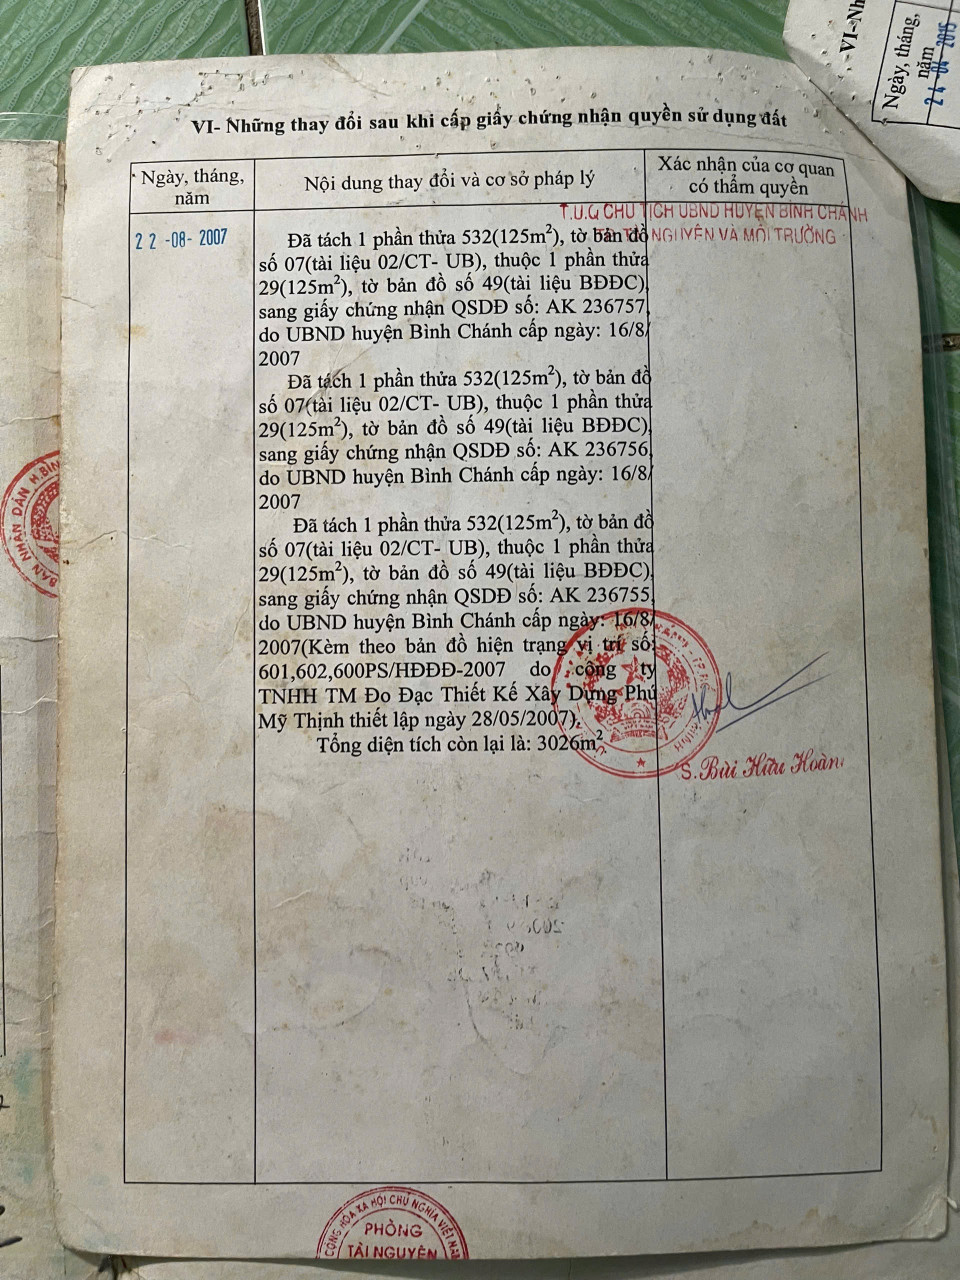 VI- Những thay đổi sau khi cấp giấy chứng nhận quyền sử dụng đất
Ngày, tháng, năm
Nội dung thay đổi và cơ sở pháp lý
Xác nhận của cơ quan có thẩm quyền
T.U.Q CHỦ TỊCH UBND HUYỆN BÌNH CHÁNH
NGUYÊN VÀ MÔI TRƯỜNG
22 -08- 2007
Đã tách 1 phần thửa 532(125m²), tờ bản đồ
số 07(tài liệu 02/CT- UB), thuộc 1 phần thửa
29(125m²), tờ bản đồ số 49(tài liệu BĐĐC)
sang giấy chứng nhận QSDĐ số: AK 236757
do UBND huyện Bình Chánh cấp ngày: 16/8/
2007
Đã tách 1 phần thửa 532(125m²), tờ bản đồ
số 07(tài liệu 02/CT- UB), thuộc 1 phần thửa
29(125m²), tờ bản đồ số 49(tài liệu BĐĐC),
sang giấy chứng nhận QSDĐ số: AK 236756,
do UBND huyện Bình Chánh cấp ngày: 16/8/
2007
Đã tách 1 phần thửa 532(125m²), tờ bản đồ
số 07(tài liệu 02/CT- UB), thuộc 1 phần thửa
29(125m²), tờ bản đồ số 49(tài liệu BĐĐC),
sang giấy chứng nhận QSDĐ số: AK 236755,
do UBND huyện Bình Chánh cấp ngày: 16/8/
2007(Kèm theo bản đồ hiện trạng vị trí số:
601,602,600PS/HĐĐĐ-2007 do công ty
TNHH TM Đo Đạc Thiết Kế Xây Dựng Phú
Mỹ Thịnh thiết lập ngày 28/05/2007).
Tổng diện tích còn lại là: 3026m²
S. Bùi Hữu Hoàn
CỘNG HÒA XÃ HỘI CHỦ NGHĨA VIỆT NAM
PHÒNG
TÀI NGUYÊN
BAN NHÂN DÂN H.BÌN
VI- Nh
Ngày, tháng,
năm
24 -04- 2015